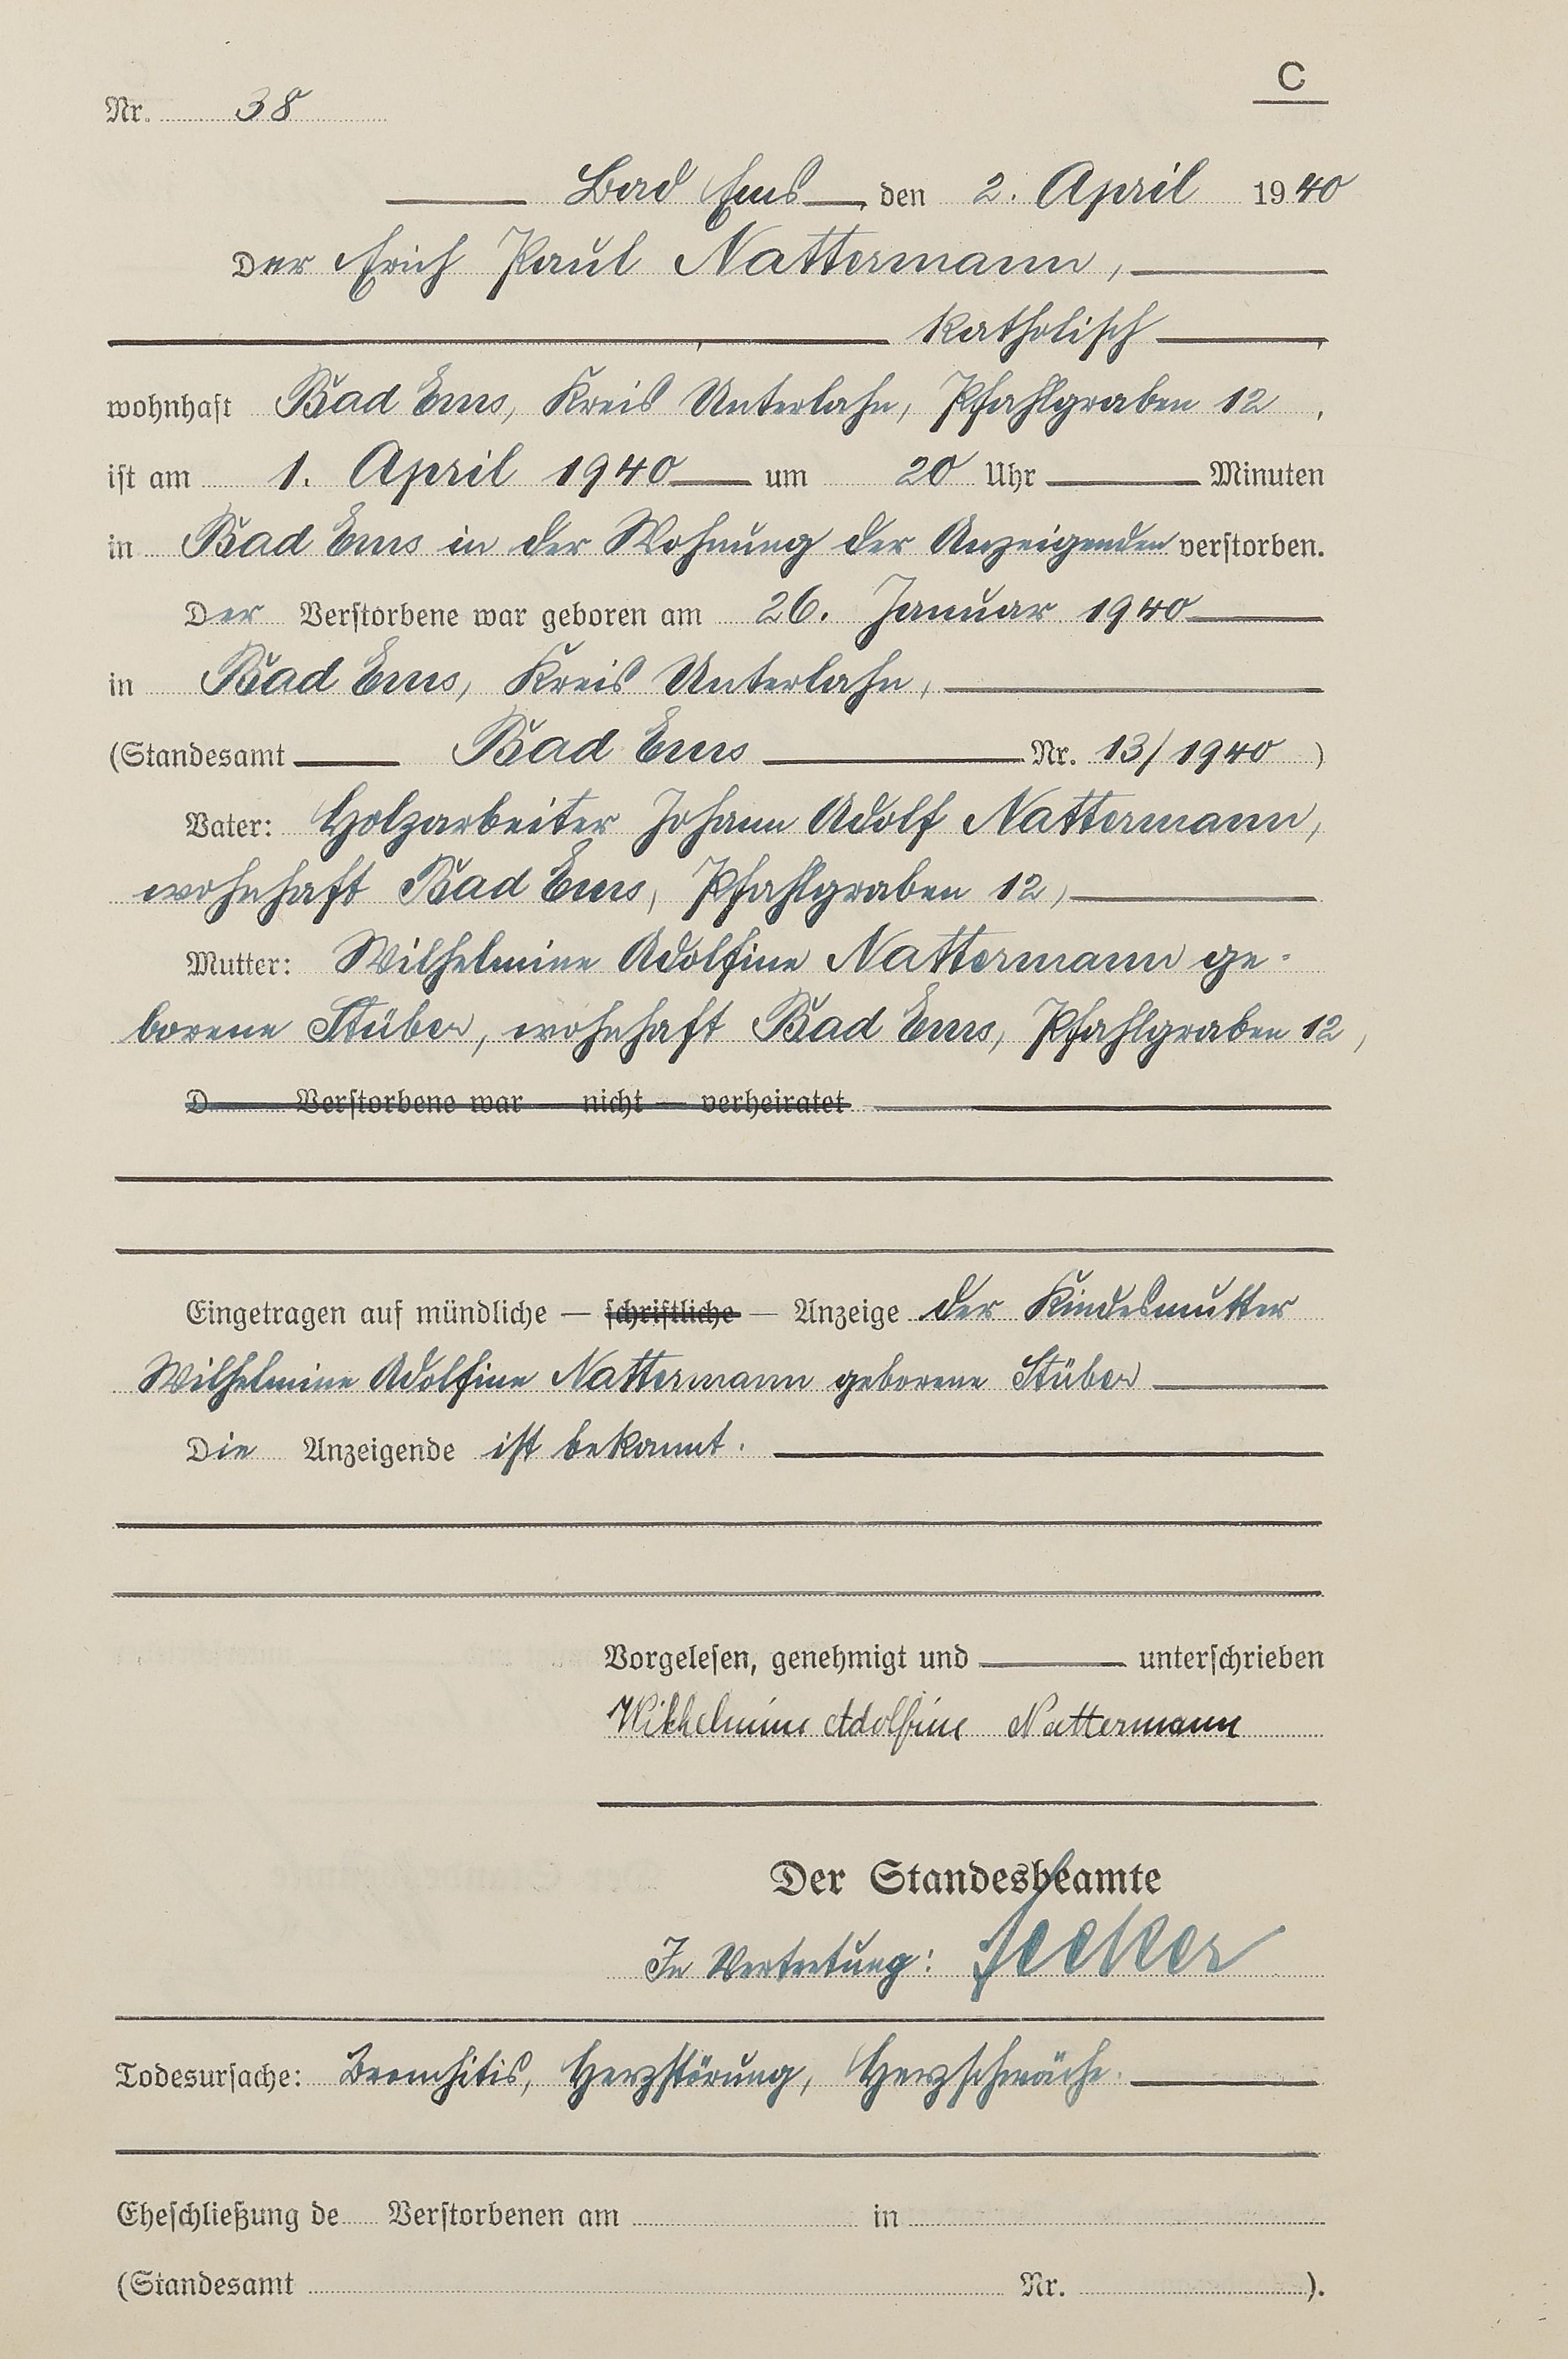 C
Nr. 38
Bad Ems, den 2. April 1940
Der Erich Paul Nattermann,
, katholisch,
wohnhaft Bad Ems, Kreis Unterlahn, Pfahlgraben 12,
ist am 1. April 1940 um 20 Uhr Minuten
in Bad Ems in der Wohnung der Anzeigenden verstorben.
Der Verstorbene war geboren am 26. Januar 1940
in Bad Ems, Kreis Unterlahn,
(Standesamt Bad Ems Nr. 13/1940)
Vater: Holzarbeiter Johann Adolf Nattermann,
wohnhaft Bad Ems, Pfahlgraben 12,
Mutter: Wilhelmine Adolfine Nattermann ge-
borene Stüber, wohnhaft Bad Ems, Pfahlgraben 12,
D Verstorbene war — nicht — verheiratet
Eingetragen auf mündliche — schriftliche — Anzeige der Kindesmutter
Wilhelmine Adolfine Nattermann geborene Stüber
Die Anzeigende ist bekannt.
Vorgelesen, genehmigt und unterschrieben
Wilhelmine Adolfine Nattermann
Der Standesbeamte
In Vertretung:
Todesursache: Bronchitis, Herzstörung, Herzschwäche.
Eheschließung de Verstorbenen am in
(Standesamt Nr. ).